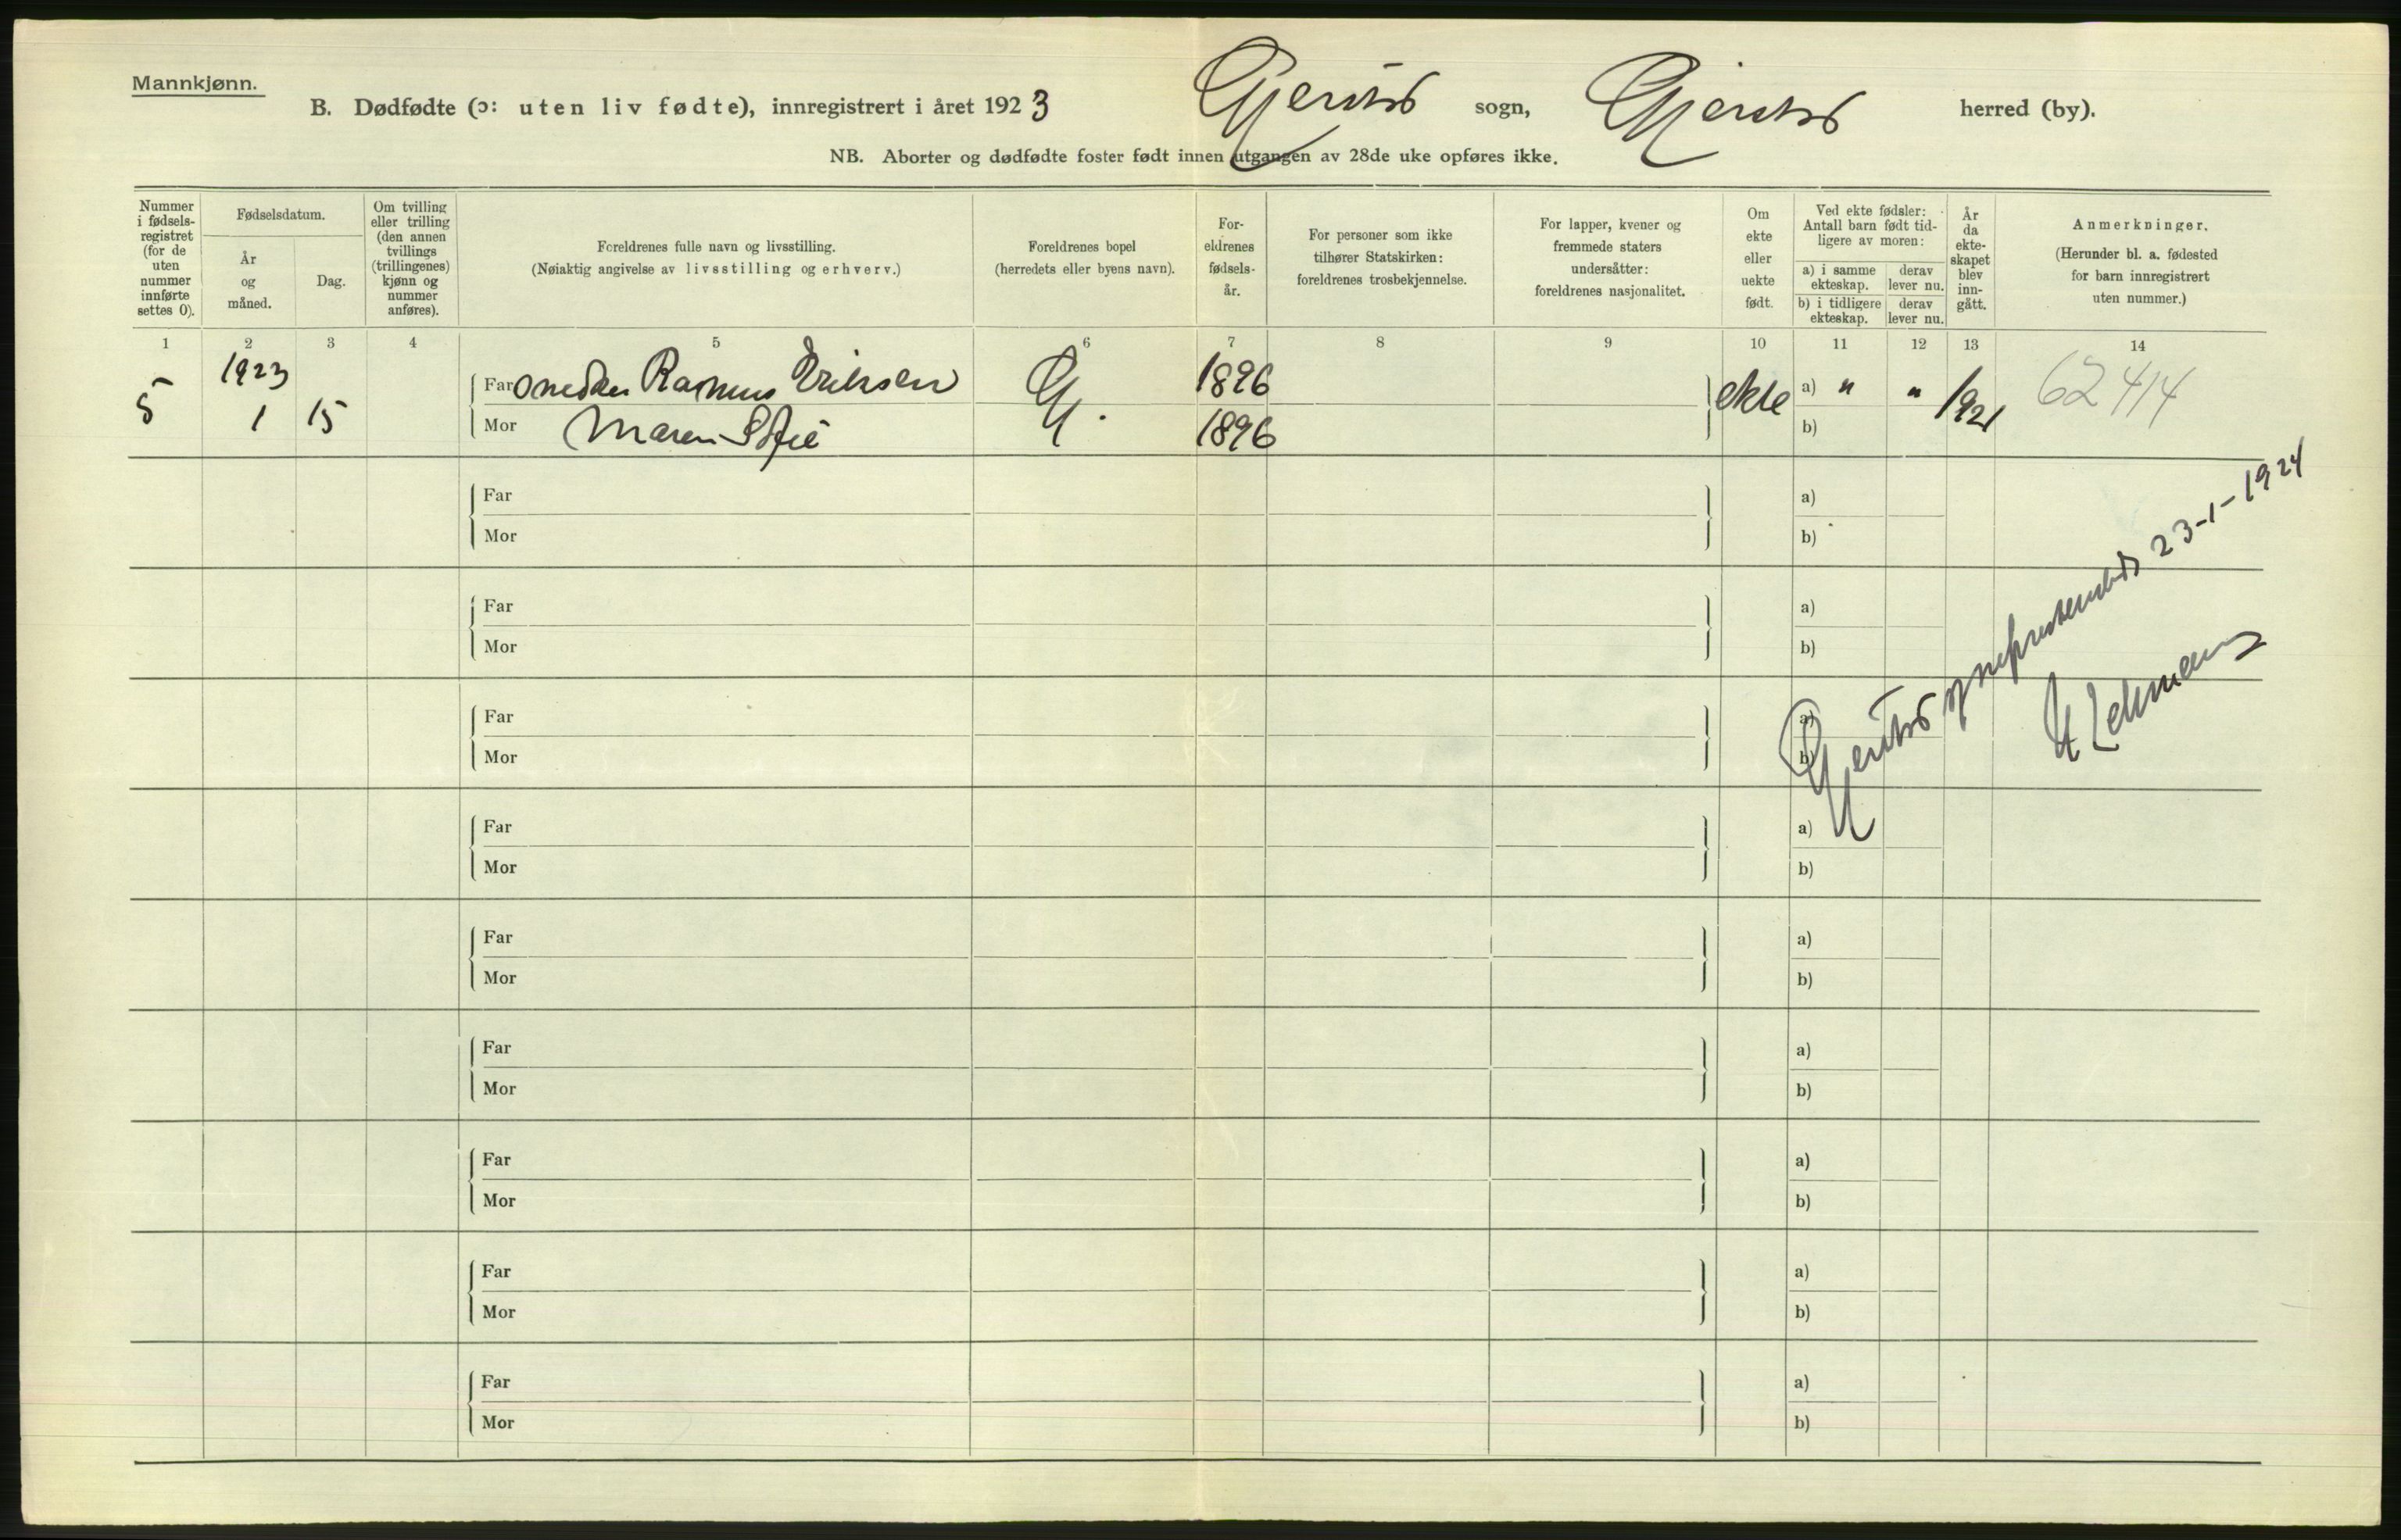 Mannkjønn.
B. Dødfødte (ɔ: uten liv fødte), innregistrert i året 1923 Gjerstad sogn, Gjerstad herred (by).
NB. Aborter og dødfødte foster født innen utgangen av 28de uke opføres ikke.
Nummer i fødsels- registret (for de uten nummer innførte settes 0).
Fødselsdatum.
År og måned.
Dag.
Om tvilling eller trilling (den annen tvillings (trillingenes) kjønn og nummer anføres).
Foreldrenes fulle navn og livsstilling.
(Nøiaktig angivelse av livsstilling og erhverv.)
Foreldrenes bopel
(herredets eller byens navn).
For- eldrenes fødsels- år.
For personer som ikke tilhører Statskirken: foreldrenes trosbekjennelse.
For lapper, kvener og fremmede staters undersåtter: foreldrenes nasjonalitet.
Om ekte eller uekte født.
Ved ekte fødsler: Antall barn født tid- ligere av moren:
a) i samme ekteskap.
derav lever nu.
b) i tidligere ekteskap.
derav lever nu.
År da ekte- skapet blev inn- gått.
Anmerkninger.
(Herunder bl. a. fødested for barn innregistrert uten nummer.)
1 2 3 4 5 6 7 8 9 10 11 12 13 14
5 1923 1 15
Far Snedker Rasmus Eriksen Gj. 1896 ekte a) " " 1921 62414
Mor Maren Sofie 1896 b)
Far a)
Mor b)
Far a)
Mor b)
Far a)
Mor b)
Far a)
Mor b)
Far a)
Mor b)
Far a)
Mor b)
Far a)
Mor b)
Far a)
Mor b)
Far a)
Mor b)
Gjerstad sogneprestembede 23-1-1924
Lehmann